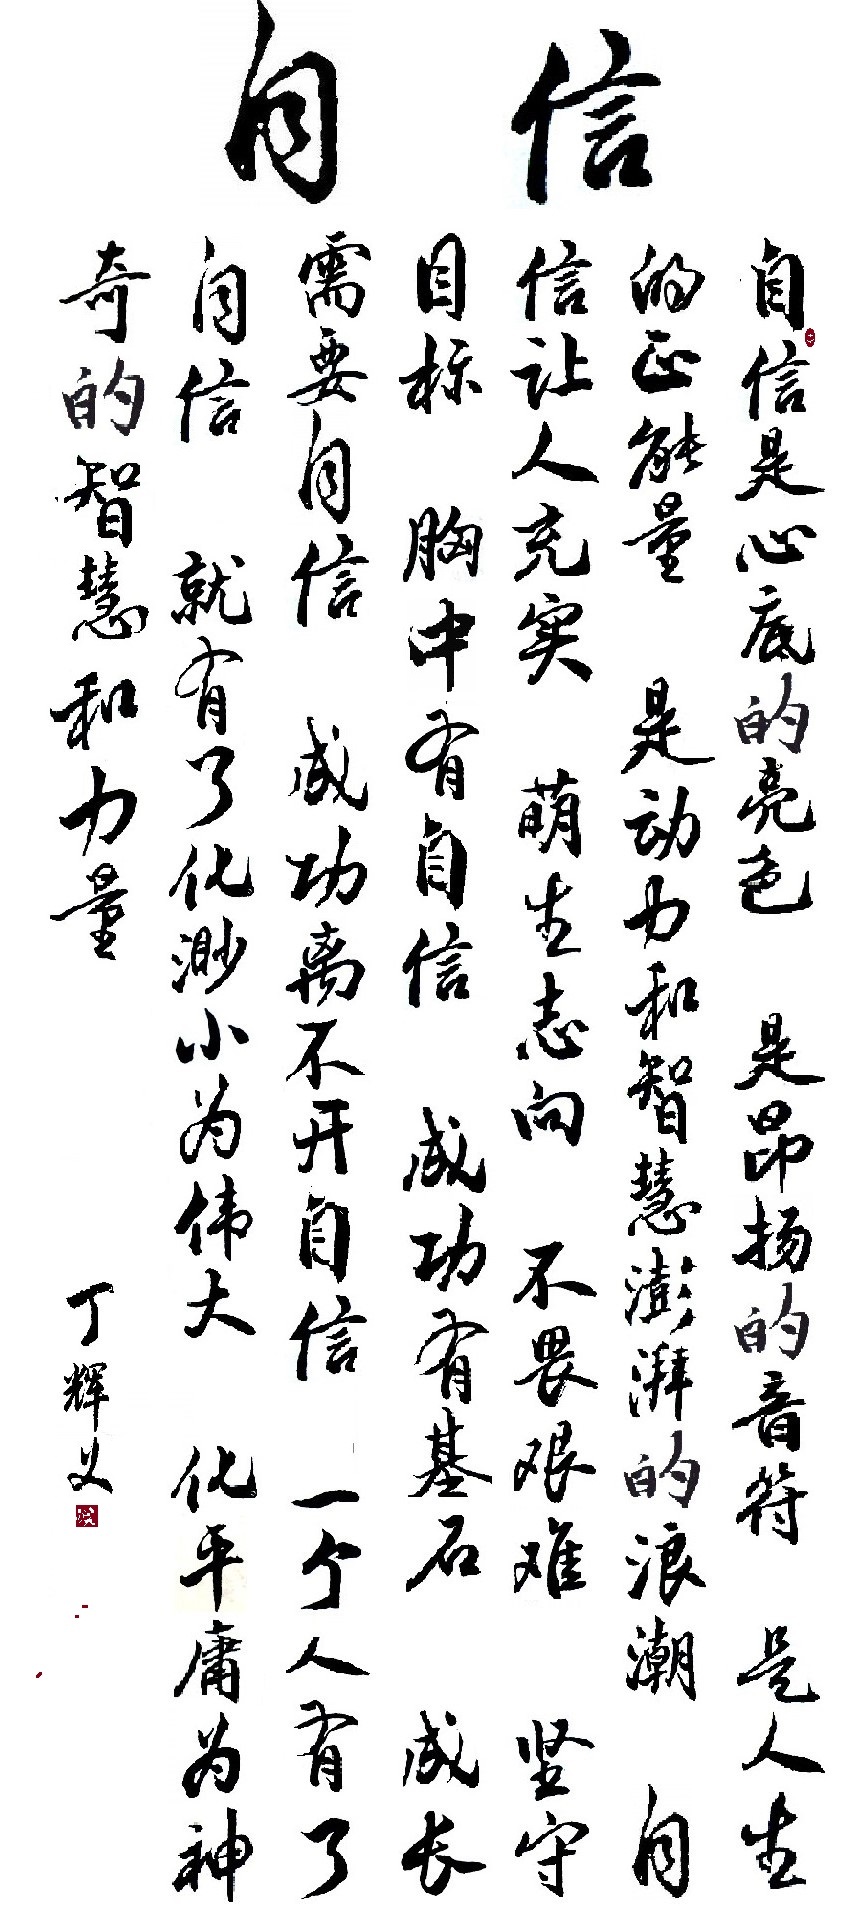 自信
自信是心底的亮色 是昂扬的音符 是人生
的正能量 是动力和智慧澎湃的浪潮 自
信让人充实 萌生志向 不畏艰难 坚守
目标 胸中有自信 成功有基石 成长
需要自信 成功离不开自信 一个人有了
自信 就有了化渺小为伟大 化平庸为神
奇的智慧和力量
丁辉义